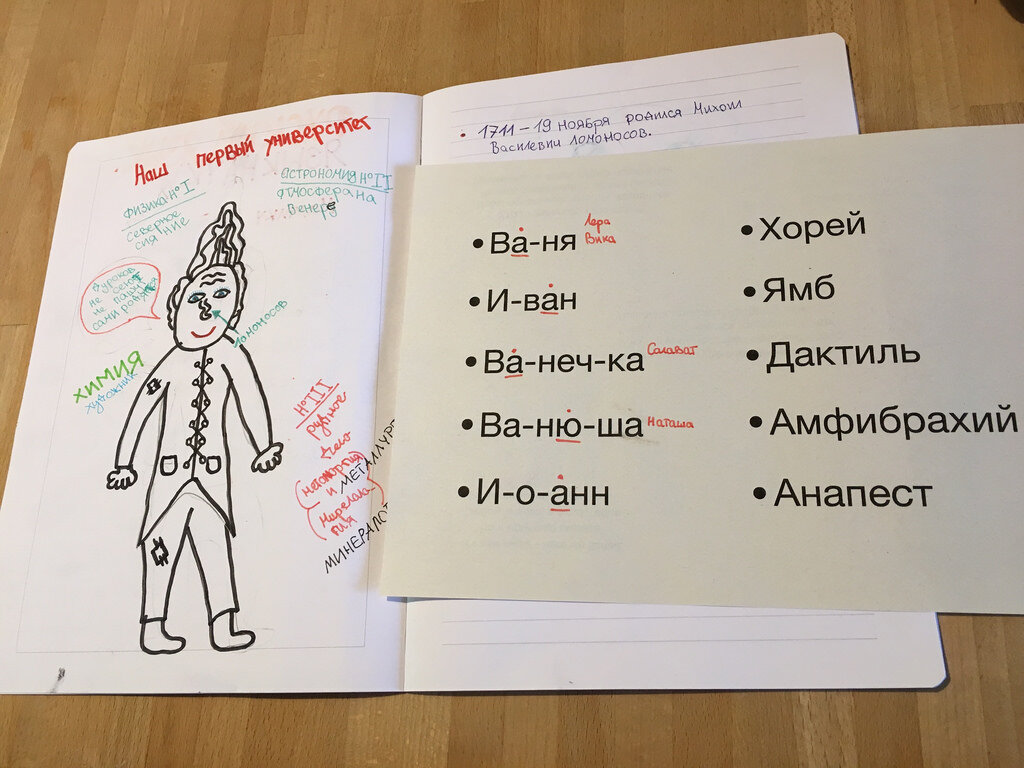 Наш первый университет
физика №I
северное
сияние
астрономия №II
атмосфера на
Венере
ломоносов
химия
художник
№III
рудное
дело
и МЕТАЛЛУР
МИНЕРАЛО
• 1711 – 19 ноября родился Михаил
Василевич Ломоносов.
• Ва-ня Лера
Вика
• И-ван
• Ва-неч-ка Салават
• Ва-ню-ша Наташа
• И-о-анн
• Хорей
• Ямб
• Дактиль
• Амфибрахий
• Анапест